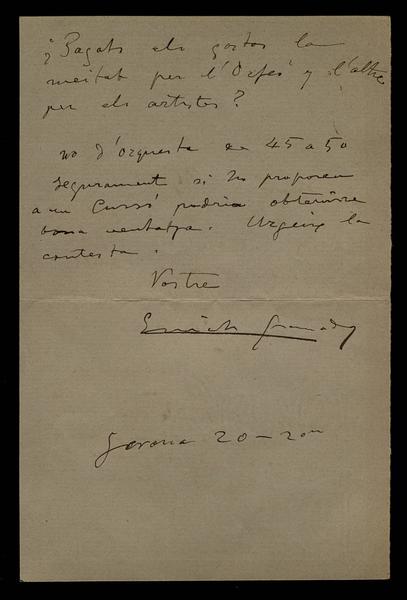 ¿Pagats els gastos la
meitat per l'Orfeó y l'altre
per els artistes?
no d'orquesta de 45 a 50
segurament si ho proposen
a un Cussó podria obtenirse
bona ventatja. Urgeix la
contesta.
Vostre
Enrich Granados
Gerona 20 –